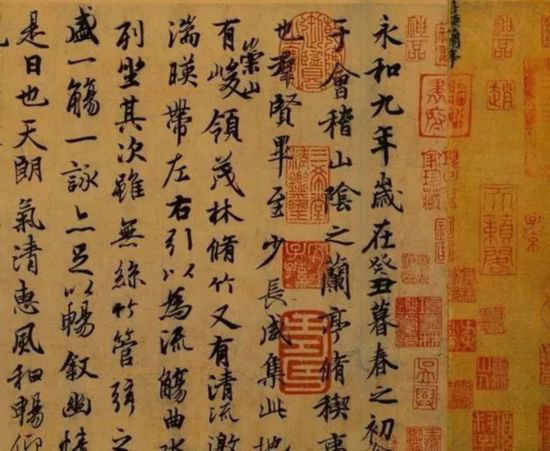 天籟閣
永和九年歲在癸丑暮春之初
于會稽山陰之蘭亭脩稧事
也羣賢畢至少長咸集此地
崇山
有峻領茂林脩竹又有清流激
湍暎帶左右引以為流觴曲水
列坐其次雖無絲竹管弦之
盛一觴一詠亦足以暢敘幽情
是日也天朗氣清惠風和暢仰